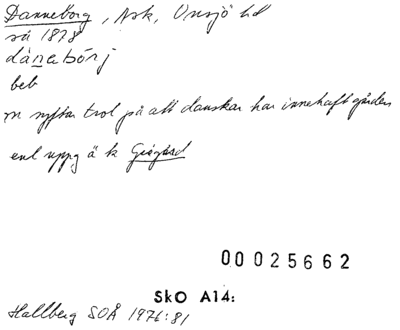 Danneborg, Ask, Onsjö hd
så 1878
dànabórj
beb
n syftar trol på att danskar har innehaft gården
enl uppg ä k
00025662
SkO A14:
Hallberg SOÅ 1976:81